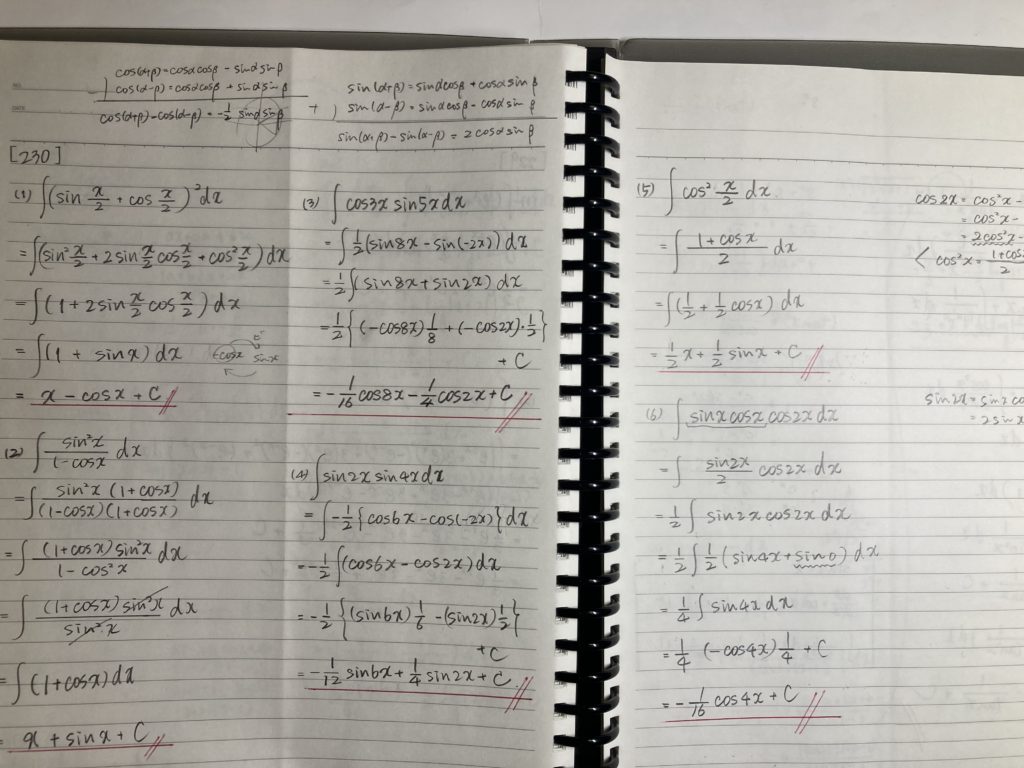 cos(α+β)=cosαcosβ - sinαsinβ
cos(α-β)=cosαcosβ + sinαsinβ
cos(α+β)-cos(α-β) = -1/2 sinαsinβ
sin(α+β)=sinαcosβ + cosαsinβ
sin(α-β)=sinαcosβ - cosαsinβ
+
sin(α+β)-sin(α-β) = 2cosαsinβ
[230]
(1) ∫(sin x/2 + cos x/2)²dx
=∫(sin² x/2 + 2sin x/2 cos x/2 + cos² x/2)dx
=∫(1+2sin x/2 cos x/2)dx
=∫(1 + sinx)dx
-cosx sinx
= x - cosx + C
(2) ∫ sin²x/(1-cosx) dx
=∫ sin²x(1+cosx)/((1-cosx)(1+cosx)) dx
=∫ (1+cosx)sin²x/(1-cos²x) dx
=∫ (1+cosx)sin²x/sin²x dx
=∫(1+cosx)dx
= x + sinx + C
(3) ∫cos3x sin5x dx
=∫1/2(sin8x - sin(-2x))dx
=1/2∫(sin8x+sin2x)dx
=1/2{(-cos8x)1/8 + (-cos2x)·1/2}
+C
=-1/16 cos8x - 1/4 cos2x + C
(4) ∫sin2x sin4x dx
=∫-1/2{cos6x - cos(-2x)}dx
=-1/2∫(cos6x - cos2x)dx
=-1/2{(sin6x)1/6 - (sin2x)1/2}
+C
=-1/12 sin6x + 1/4 sin2x + C
(5) ∫cos² x/2 dx
=∫ (1+cosx)/2 dx
=∫(1/2 + 1/2 cosx)dx
=1/2 x + 1/2 sinx + C
cos2x = cos²x -
= cos²x -
= 2cos²x -
cos²x = 1+cos /2
(6) ∫sinx cosx cos2x dx
=∫ sin2x/2 cos2x dx
=1/2∫ sin2x cos2x dx
=1/2∫1/2(sin4x + sin0)dx
=1/4∫sin4x dx
=1/4(-cos4x)1/4 + C
=-1/16 cos4x + C
sin2x = sinx co
= 2sinx